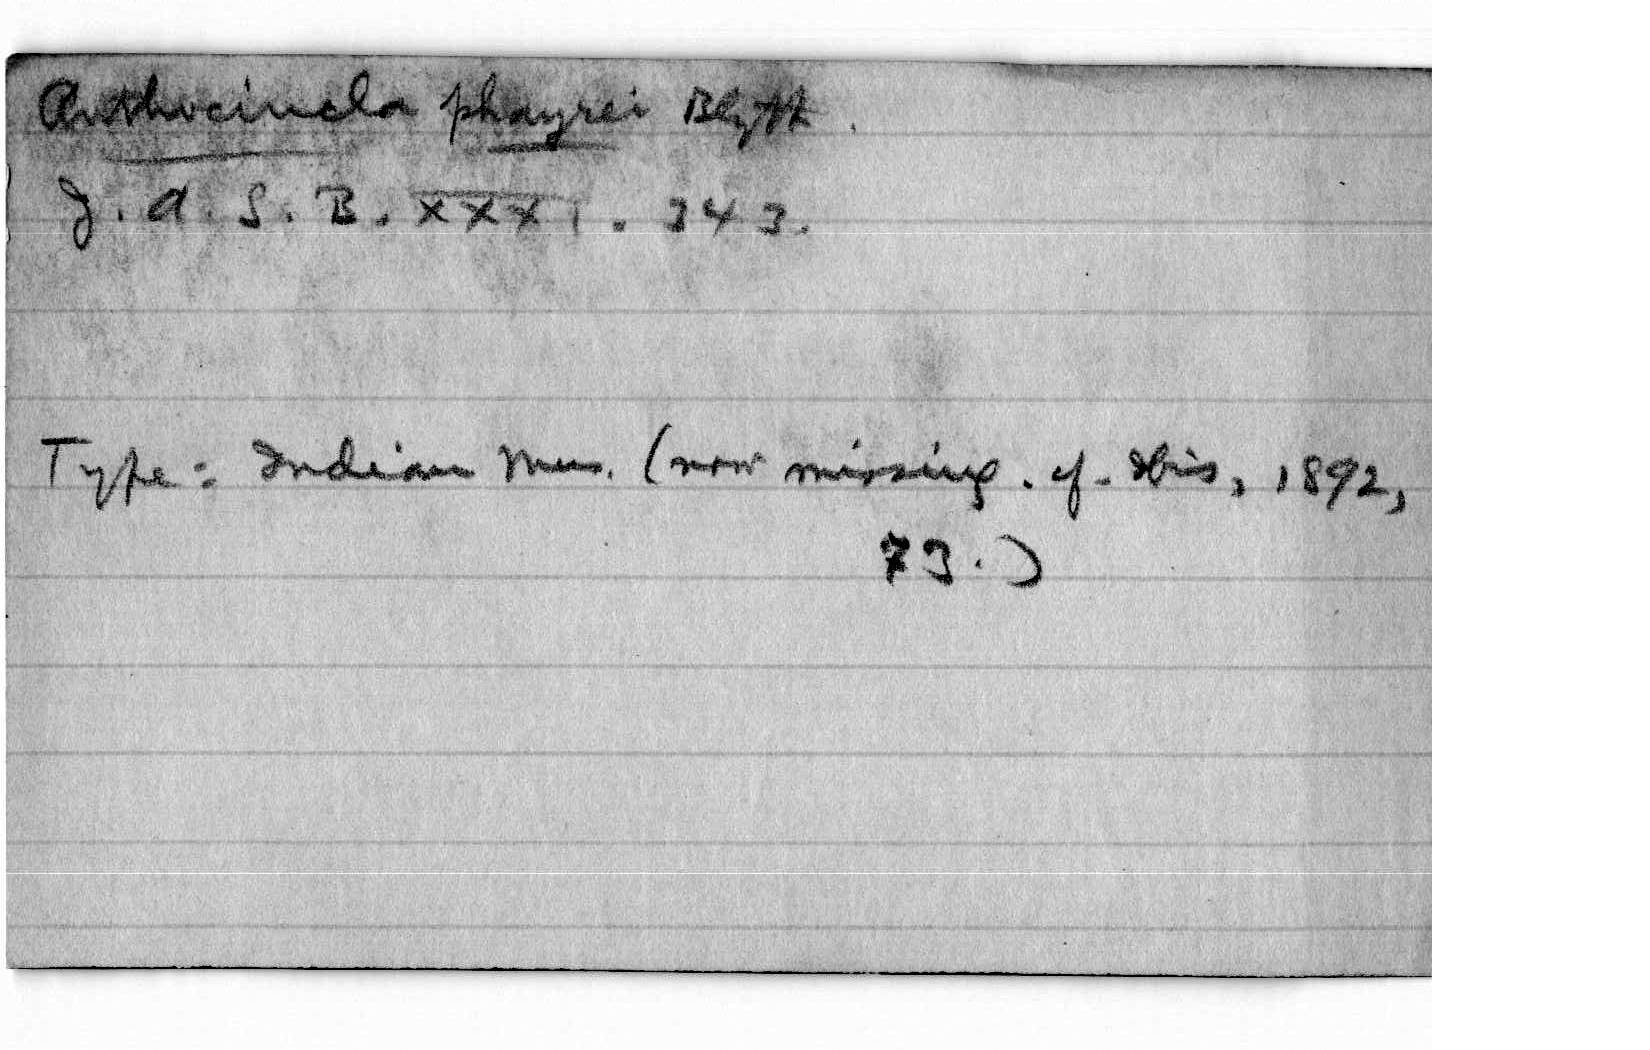 Anthocincla phayrei Blyth.
J. A. S. B. XXXI. 343.
Type: Indian Mus. (now missing. cf. Ibis, 1892,
73.)